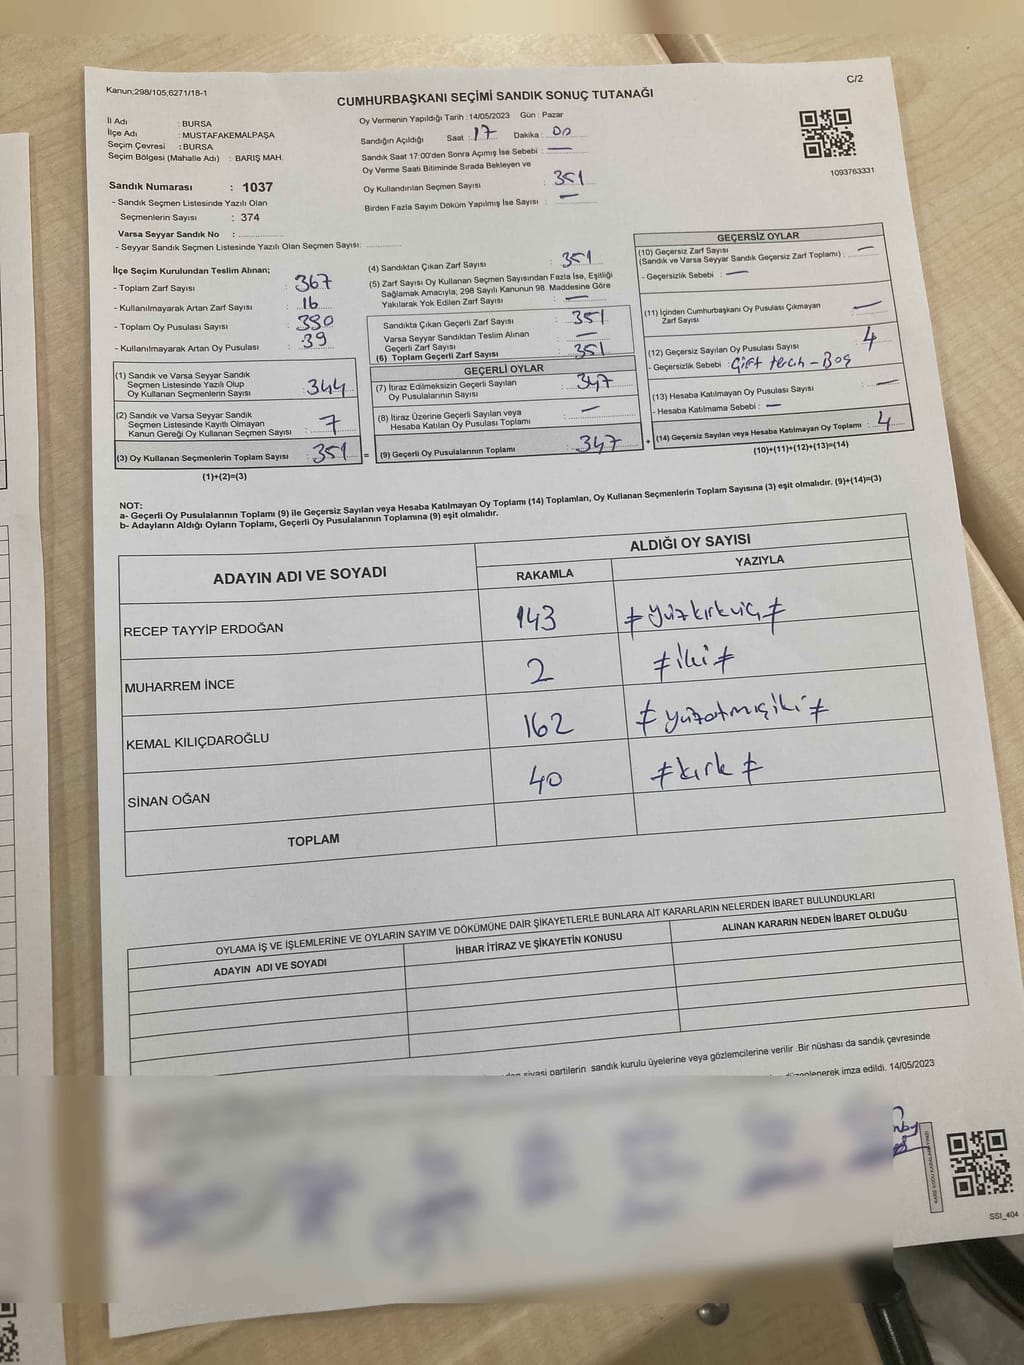 Kanun;298/105,6271/18-1
C/2
CUMHURBAŞKANI SEÇİMİ SANDIK SONUÇ TUTANAĞI
İl Adı : BURSA
İlçe Adı : MUSTAFAKEMALPAŞA
Seçim Çevresi : BURSA
Seçim Bölgesi (Mahalle Adı) : BARIŞ MAH.
Sandık Numarası : 1037
- Sandık Seçmen Listesinde Yazılı Olan
Seçmenlerin Sayısı : 374
Varsa Seyyar Sandık No :
- Seyyar Sandık Seçmen Listesinde Yazılı Olan Seçmen Sayısı:
Oy Vermenin Yapıldığı Tarih : 14/05/2023 Gün : Pazar
Sandığın Açıldığı Saat : 17 Dakika : 00
Sandık Saat 17:00'den Sonra Açımış İse Sebebi : —
Oy Verme Saati Bitiminde Sırada Bekleyen ve
Oy Kullandırılan Seçmen Sayısı : 351
Birden Fazla Sayım Döküm Yapılmış İse Sayısı : —
1093763331
İlçe Seçim Kurulundan Teslim Alınan;
- Toplam Zarf Sayısı : 367
- Kullanılmayarak Artan Zarf Sayısı : 16
- Toplam Oy Pusulası Sayısı : 390
- Kullanılmayarak Artan Oy Pusulası : 39
(1) Sandık ve Varsa Seyyar Sandık
Seçmen Listesinde Yazılı Olup
Oy Kullanan Seçmenlerin Sayısı : 344
(2) Sandık ve Varsa Seyyar Sandık
Seçmen Listesinde Kayıtlı Olmayan
Kanun Gereği Oy Kullanan Seçmen Sayısı : 7
(3) Oy Kullanan Seçmenlerin Toplam Sayısı : 351
(1)+(2)=(3)
(4) Sandıktan Çıkan Zarf Sayısı : 351
(5) Zarf Sayısı Oy Kullanan Seçmen Sayısından Fazla İse, Eşitliği
Sağlamak Amacıyla; 298 Sayılı Kanunun 98. Maddesine Göre
Yakılarak Yok Edilen Zarf Sayısı : —
Sandıkta Çıkan Geçerli Zarf Sayısı : 351
Varsa Seyyar Sandıktan Teslim Alınan
Geçerli Zarf Sayısı : —
(6) Toplam Geçerli Zarf Sayısı : 351
GEÇERLİ OYLAR
(7) İtiraz Edilmeksizin Geçerli Sayılan
Oy Pusulalarının Sayısı : 347
(8) İtiraz Üzerine Geçerli Sayılan veya
Hesaba Katılan Oy Pusulası Toplamı : —
= (9) Geçerli Oy Pusulalarının Toplamı : 347
GEÇERSİZ OYLAR
(10) Geçersiz Zarf Sayısı
(Sandık ve Varsa Seyyar Sandık Geçersiz Zarf Toplamı) : —
- Geçersizlik Sebebi : —
(11) İçinden Cumhurbaşkanı Oy Pusulası Çıkmayan
Zarf Sayısı : —
(12) Geçersiz Sayılan Oy Pusulası Sayısı : 4
- Geçersizlik Sebebi : Çift tercih - Boş
(13) Hesaba Katılmayan Oy Pusulası Sayısı : —
- Hesaba Katılmama Sebebi : —
+ (14) Geçersiz Sayılan veya Hesaba Katılmayan Oy Toplamı : 4
(10)+(11)+(12)+(13)=(14)
NOT:
a- Geçerli Oy Pusulalarının Toplamı (9) ile Geçersiz Sayılan veya Hesaba Katılmayan Oy Toplamı (14) Toplamları, Oy Kullanan Seçmenlerin Toplam Sayısına (3) eşit olmalıdır. (9)+(14)=(3)
b- Adayların Aldığı Oyların Toplamı, Geçerli Oy Pusulalarının Toplamına (9) eşit olmalıdır.
ADAYIN ADI VE SOYADI
ALDIĞI OY SAYISI
RAKAMLA YAZIYLA
RECEP TAYYİP ERDOĞAN 143 ≠ yüzkırküç ≠
MUHARREM İNCE 2 ≠ iki ≠
KEMAL KILIÇDAROĞLU 162 ≠ yüzatmışiki ≠
SİNAN OĞAN 40 ≠ kırk ≠
TOPLAM
OYLAMA İŞ VE İŞLEMLERİNE VE OYLARIN SAYIM VE DÖKÜMÜNE DAİR ŞİKAYETLERLE BUNLARA AİT KARARLARIN NELERDEN İBARET BULUNDUKLARI
ADAYIN ADI VE SOYADI İHBAR İTİRAZ VE ŞİKAYETİN KONUSU ALINAN KARARIN NEDEN İBARET OLDUĞU
siyasi partilerin sandık kurulu üyelerine veya gözlemcilerine verilir .Bir nüshası da sandık çevresinde
imza edildi. 14/05/2023
SSI_404